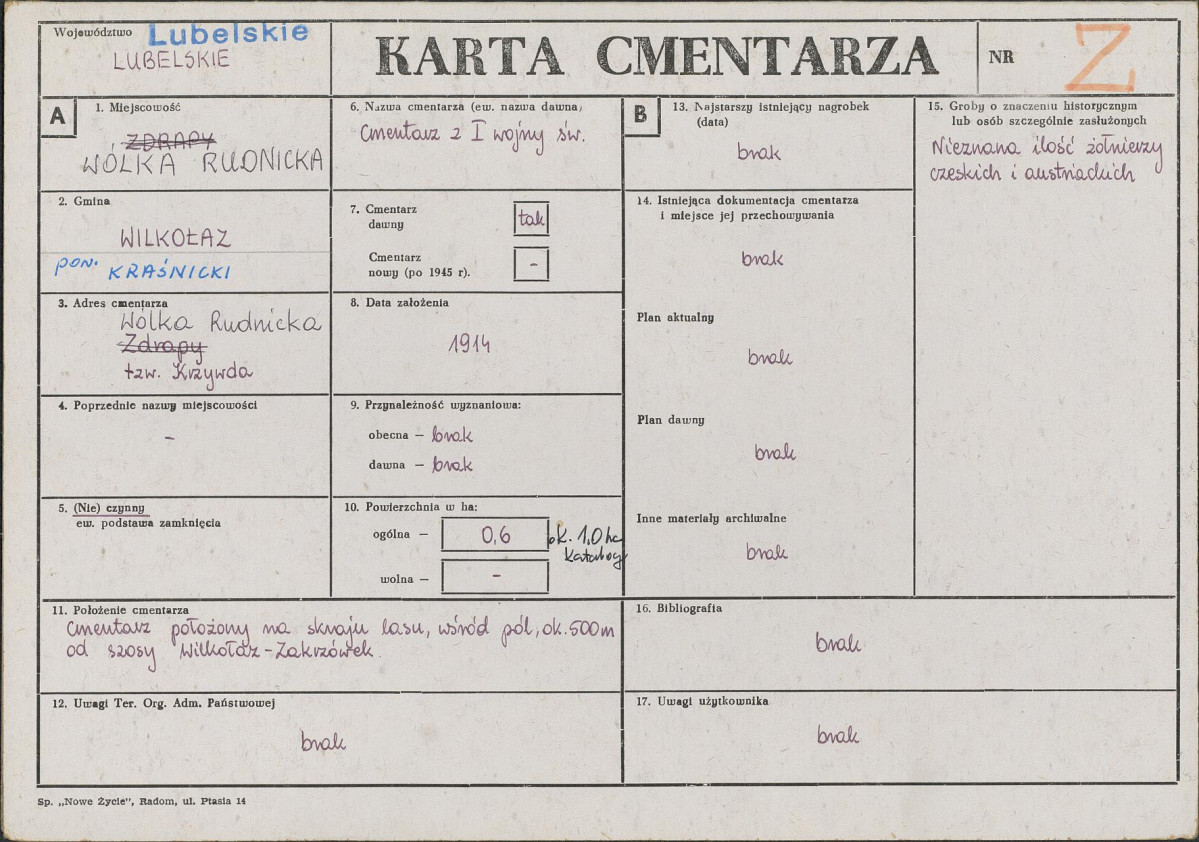 Województwo Lubelskie
LUBELSKIE
KARTA CMENTARZA
NR Z
A
1. Miejscowość
ZDRAPY
WÓLKA RUDNICKA
2. Gmina
WILKOŁAZ
pow. KRAŚNICKI
3. Adres cmentarza
Wólka Rudnicka
Zdrapy
tzw. Krzywda
4. Poprzednie nazwy miejscowości
–
5. (Nie) czynny
ew. podstawa zamknięcia
6. Nazwa cmentarza (ew. nazwa dawna,
Cmentarz z I wojny św.
7. Cmentarz
dawny tak
Cmentarz
nowy (po 1945 r). -
8. Data założenia
1914
9. Przynależność wyznaniowa:
obecna — brak
dawna — brak
10. Powierzchnia w ha:
ogólna — 0,6 ok. 1,0 ha
Katalog
wolna — -
11. Położenie cmentarza
Cmentarz położony na skraju lasu, wśród pól, ok. 500m
od szosy Wilkołaz-Zakrzówek.
12. Uwagi Ter. Org. Adm. Państwowej
brak
B
13. Najstarszy istniejący nagrobek
(data)
brak
14. Istniejąca dokumentacja cmentarza
i miejsce jej przechowywania
brak
Plan aktualny
brak
Plan dawny
brak
Inne materiały archiwalne
brak
15. Groby o znaczeniu historycznym
lub osób szczególnie zasłużonych
Nieznana ilość żołnierzy
czeskich i austriackich
16. Bibliografia
brak
17. Uwagi użytkownika
brak
Sp. „Nowe Życie”, Radom, ul. Ptasia 14